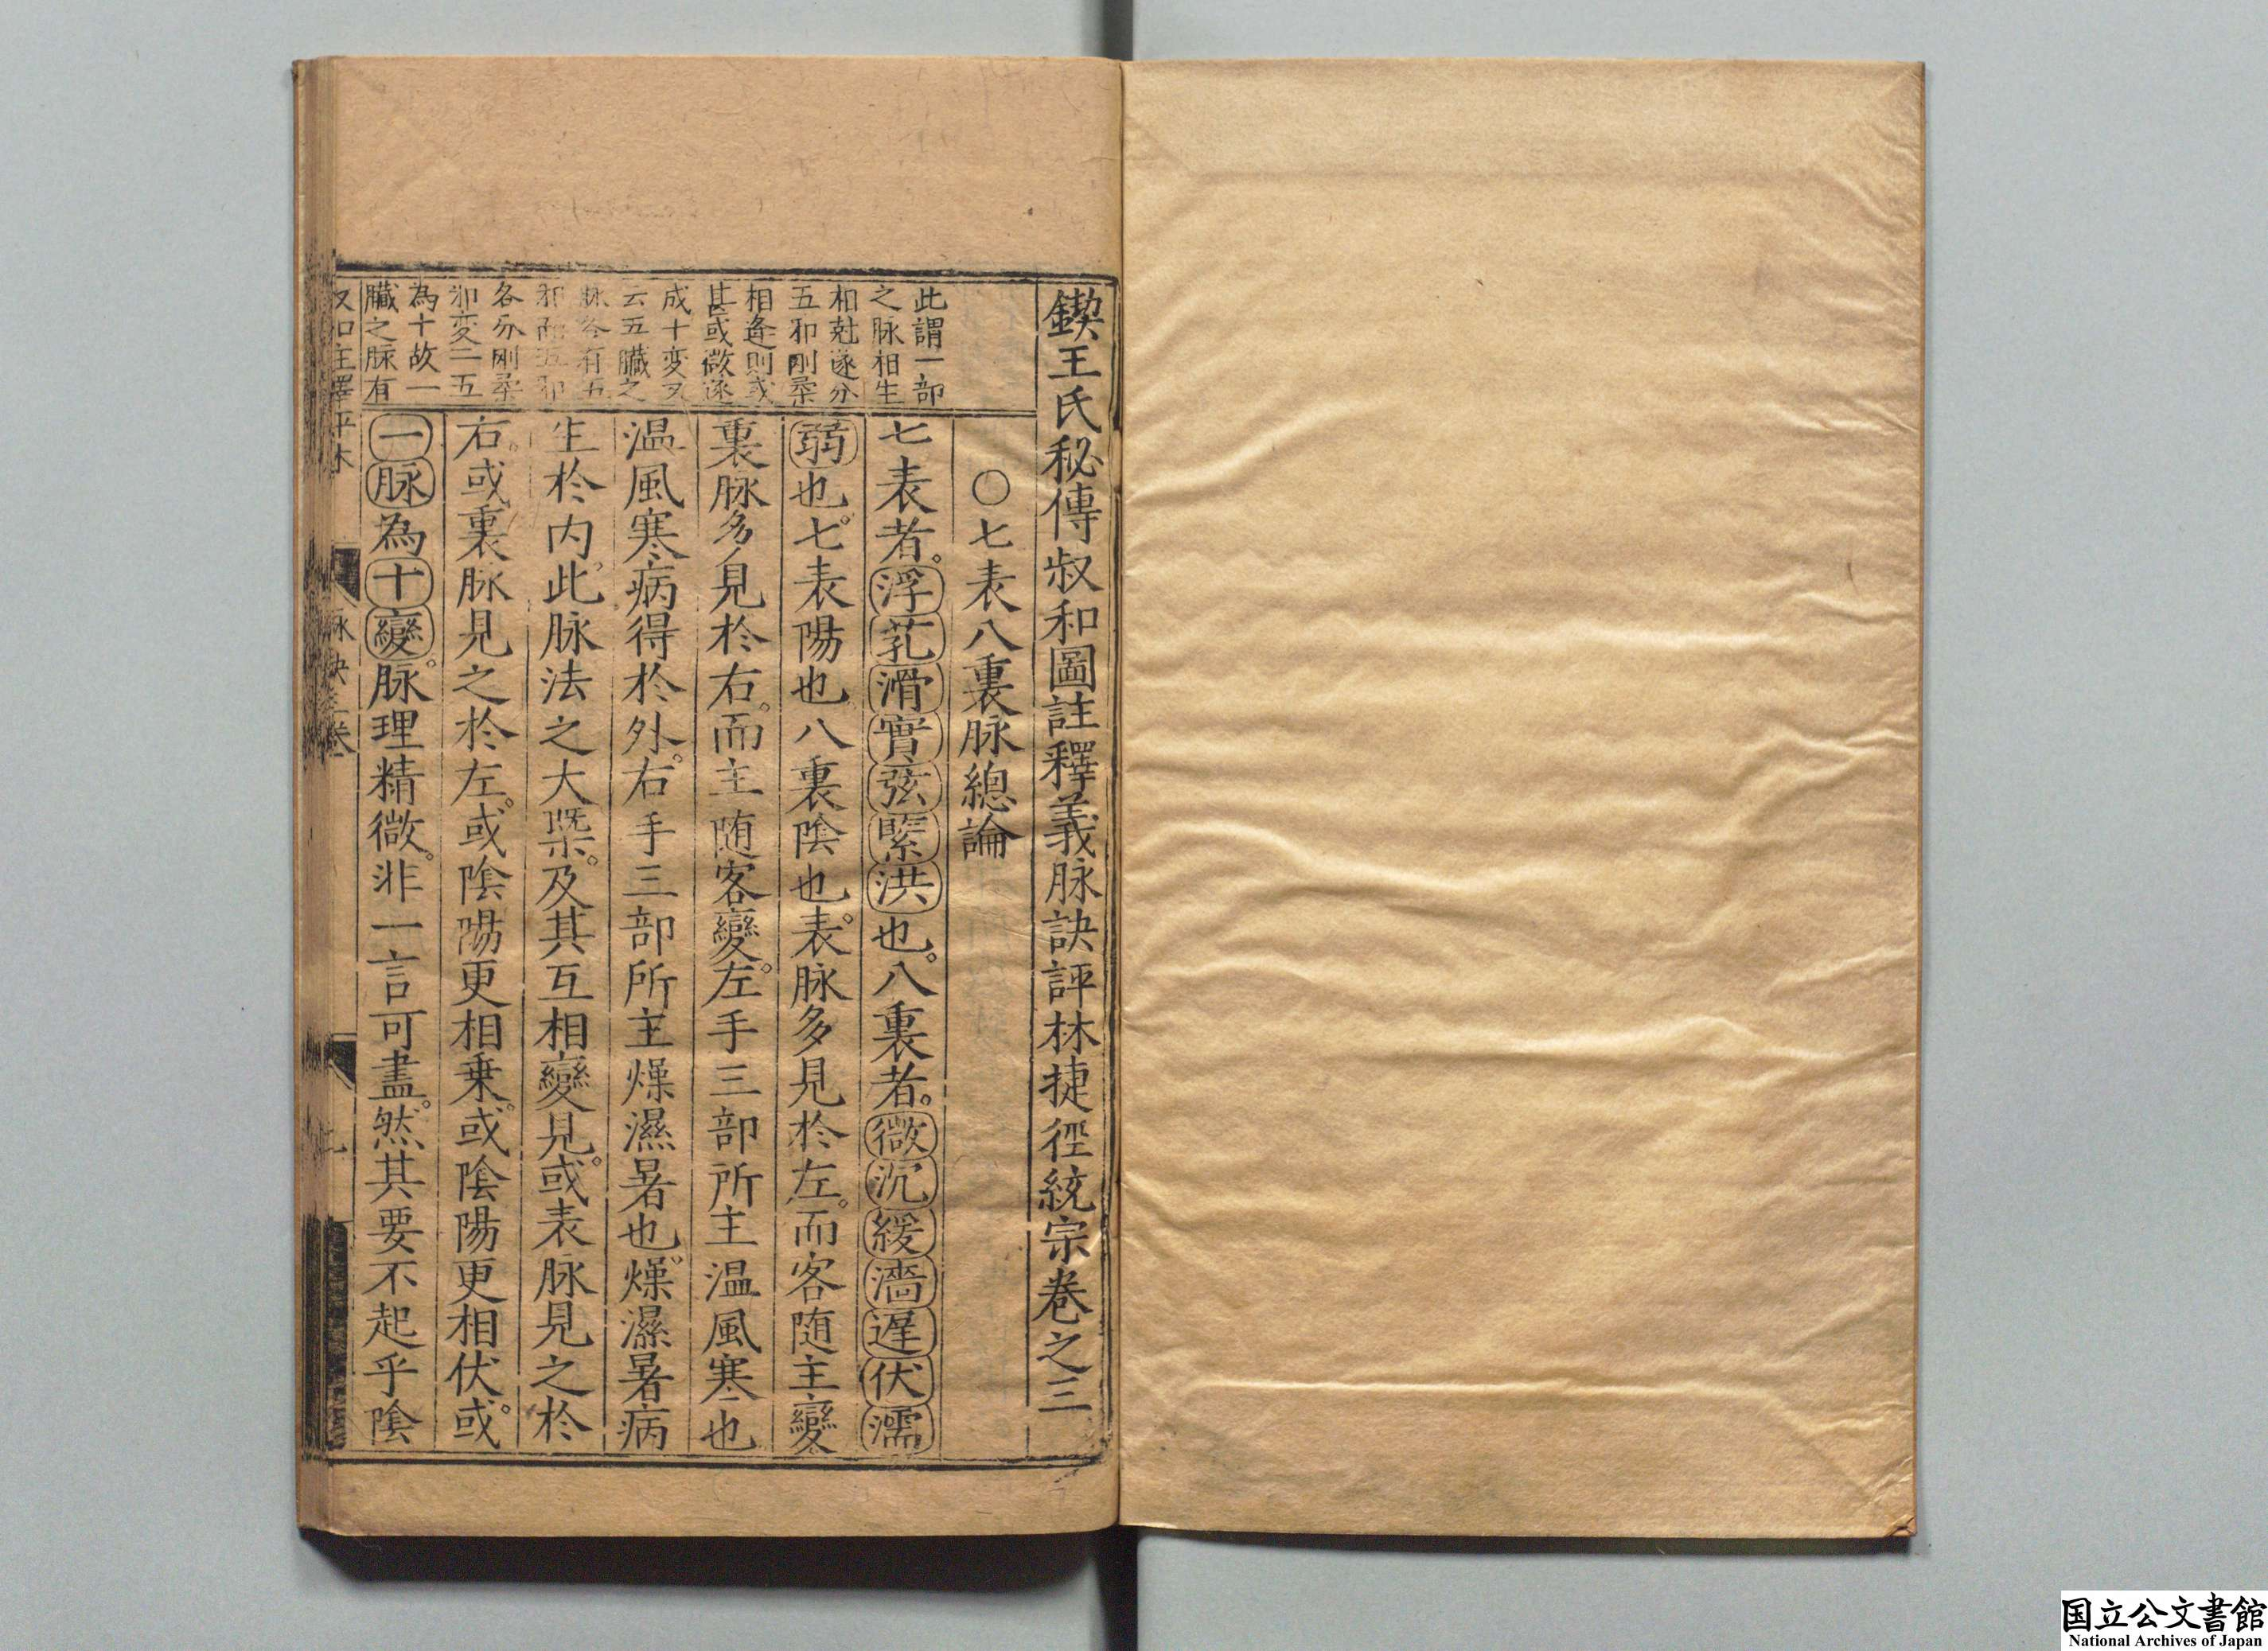 鍥王氏秘傳叔和圖註釋義脉訣評林捷徑統宗卷之三
○七表八裏脉總論
七表者。浮芤滑實弦緊洪也。八裏者。微沉緩濇遲伏濡
弱也。七表陽也八裏陰也。表脉多見於左。而客随主變
裏脉多見於右。而主随客變。左手三部所主温風寒也
温風寒病得於外。右手三部所主燥濕暑也。燥濕暑病
生於内。此脉法之大槩。及其互相變見。或表脉見之於
右。或裏脉見之於左。或陰陽更相乗。或陰陽更相伏。或
一脉為十變。脉理精微。非一言可盡。然其要不起乎陰
此謂一部
之脉相生
相尅遂分
五邪剛柔
相逢則或
甚或微遂
成十変又
云五臟之
脉各有五
邪
各分剛柔
邪変二五
為十故一
臟之脉有
脉訣三卷
国立公文書館
National Archives of Japan